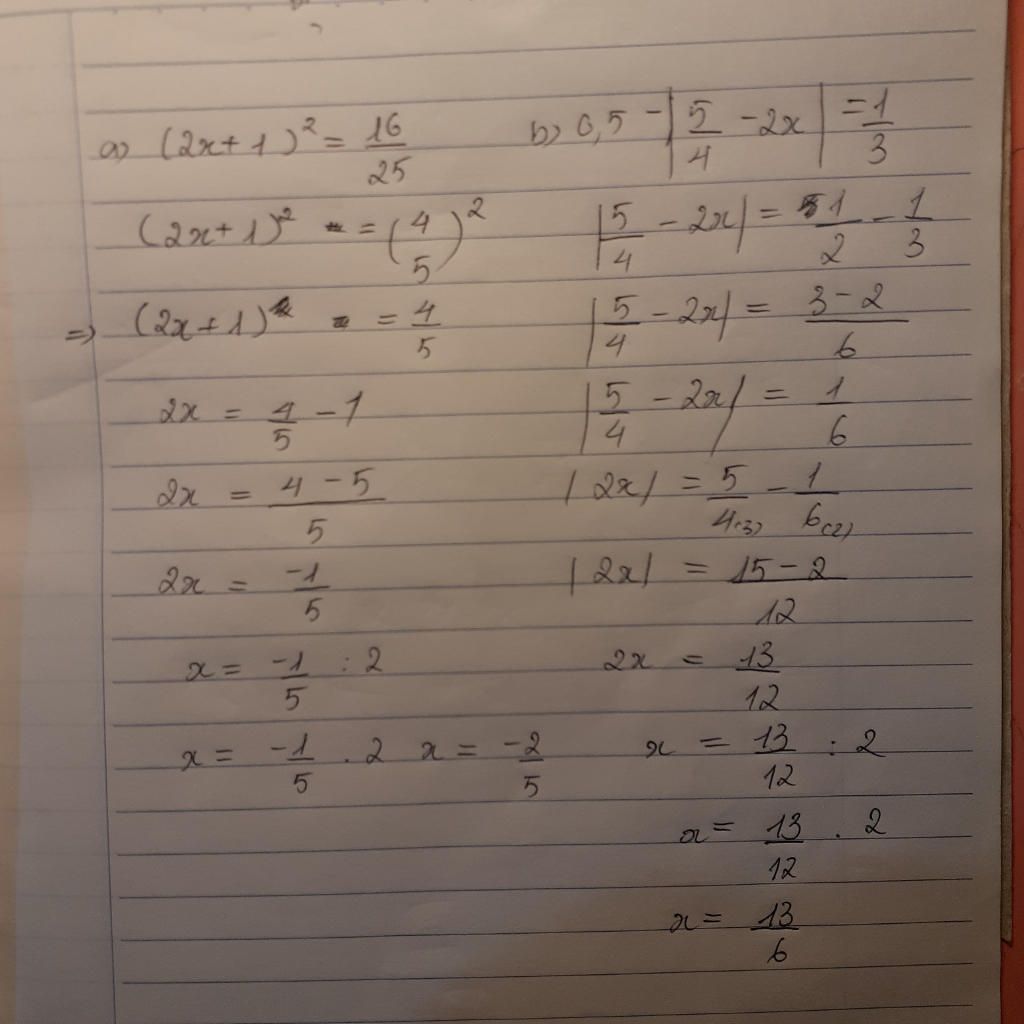 a) (2x+1)² = 16/25
(2x+1)² = (4/5)²
=> (2x+1) = 4/5
2x = 4/5 - 1
2x = (4-5)/5
2x = -1/5
x = -1/5 : 2
x = -1/5 . 2 x = -2/5
b) 0,5 - |5/4 - 2x| = 1/3
|5/4 - 2x| = 1/2 - 1/3
|5/4 - 2x| = (3-2)/6
|5/4 - 2x| = 1/6
|2x| = 5/4(3) - 1/6(2)
|2x| = (15-2)/12
2x = 13/12
x = 13/12 : 2
x = 13/12 . 2
x = 13/6